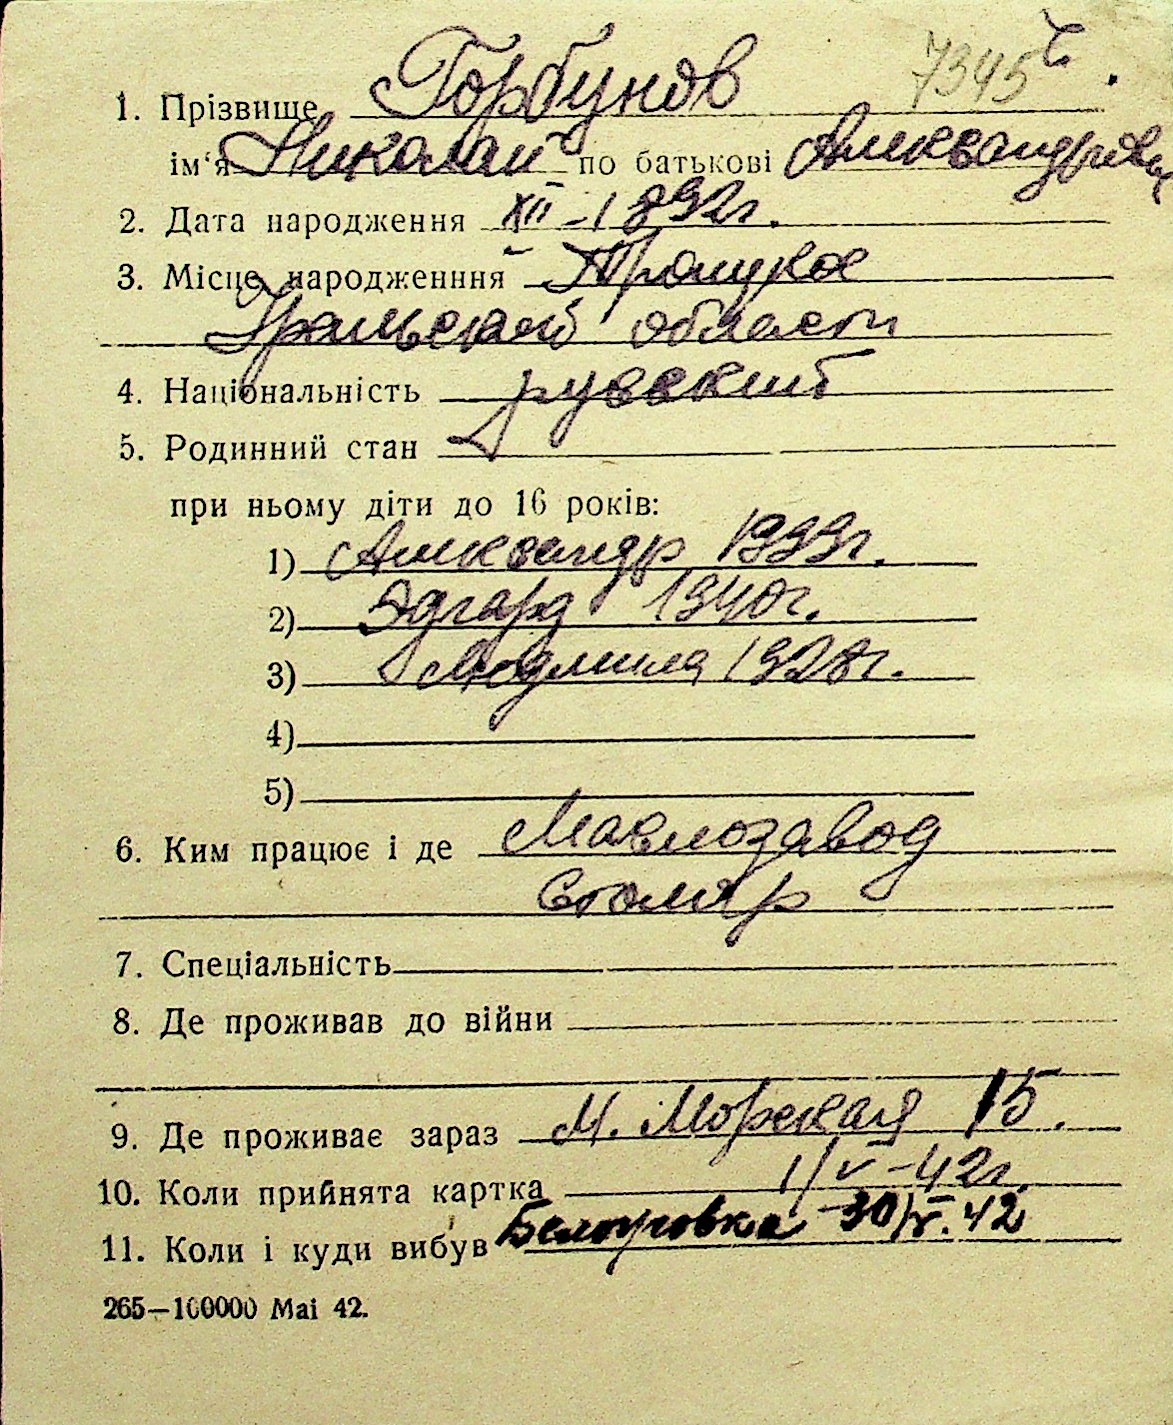 7345
1. Прізвище Горбунов
ім'я Николай по батькові Александрович
2. Дата народження XII-1892г.
3. Місце народженння Троицкое
Уральской области
4. Національність русский
5. Родинний стан
при ньому діти до 16 років:
1) Александр 1939г.
2) Эдгард 1940г.
3) Людмила 1928г.
4)
5)
6. Ким працює і де Маслозавод
Столяр
7. Спеціальність
8. Де проживав до війни
9. Де проживає зараз М. Морская 15.
10. Коли прийнята картка 1/V-42г.
11. Коли і куди вибув 30/V.42
265—100000 Mai 42.